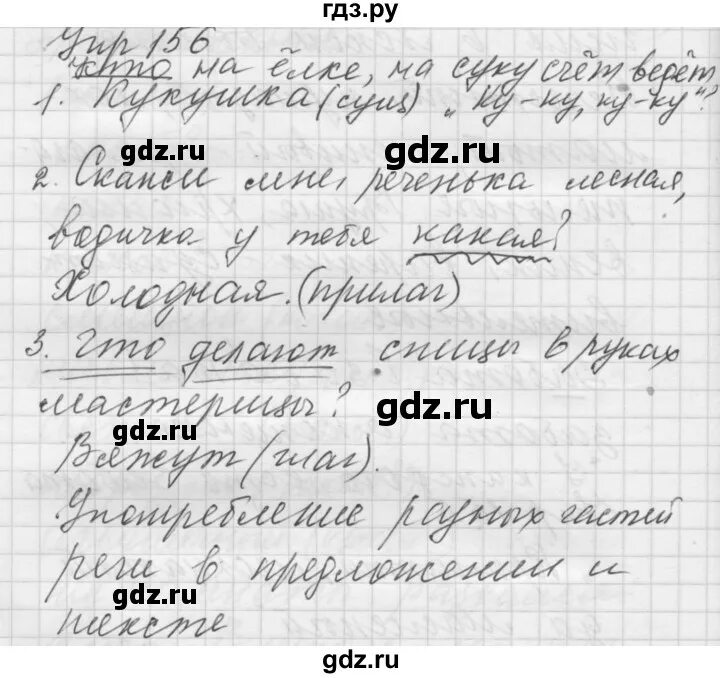 гдз.ру
Упр 156
кто на ёлке, на суку счёт ведёт
1. Кукушка (сущ) „Ку-ку, ку-ку"?
gdz.ru gdz.ru
2. Скажи мне, реченька лесная,
водичка у тебя какая?
Холодная. (прилаг)
3. Что делают спицы в руках
мастерицы?
gdz.ru gdz.ru
Вяжут (глаг).
Употребление разных частей
речи в предложении и
gdz.ru
тексте
gdz.ru